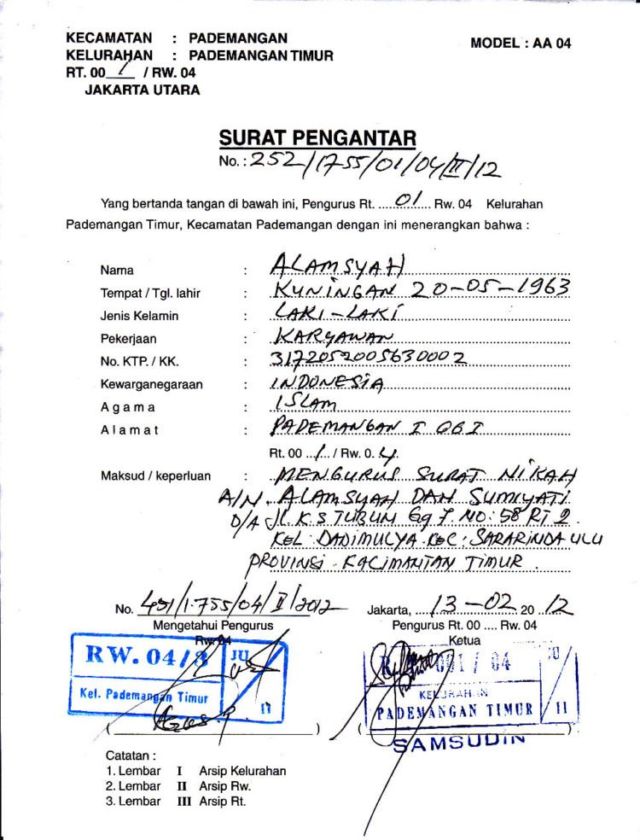 KECAMATAN : PADEMANGAN
MODEL : AA 04
KELURAHAN : PADEMANGAN TIMUR
RT. 001 / RW. 04
JAKARTA UTARA
SURAT PENGANTAR
No. : 252/1755/01/04/II/12
Yang bertanda tangan di bawah ini, Pengurus Rt. ....01.... Rw. 04 Kelurahan
Pademangan Timur, Kecamatan Pademangan dengan ini menerangkan bahwa :
Nama : ALAMSYAH
Tempat / Tgl. lahir : KUNINGAN 20-05-1963
Jenis Kelamin : LAKI-LAKI
Pekerjaan : KARYAWAN
No. KTP. / KK. : 3172052005630002
Kewarganegaraan : INDONESIA
Agama : ISLAM
Alamat : PADEMANGAN I
Rt. 00 1 / Rw. 0.4.
Maksud / keperluan : MENGURUS SURAT NIKAH
A/N. ALAMSYAH DAN SUMIYATI
D/A JL. K.S TUBUN Gg 7 NO. 58 RT 2
KEL. DADIMULYA KEC. SARARINDA ULU
PROVINSI KALIMANTAN TIMUR.
No. 491/1.755/04/II/2012
Jakarta, 13-02 2012
Mengetahui Pengurus
Rw. 04
Pengurus Rt. 00 .... Rw. 04
Ketua
RW. 04/3 JU
Kel. Pademangan Timur 11
001 / 04 JU
KELURAHAN
PADEMANGAN TIMUR 11
SAMSUDIN
Catatan :
1. Lembar I Arsip Kelurahan
2. Lembar II Arsip Rw.
3. Lembar III Arsip Rt.